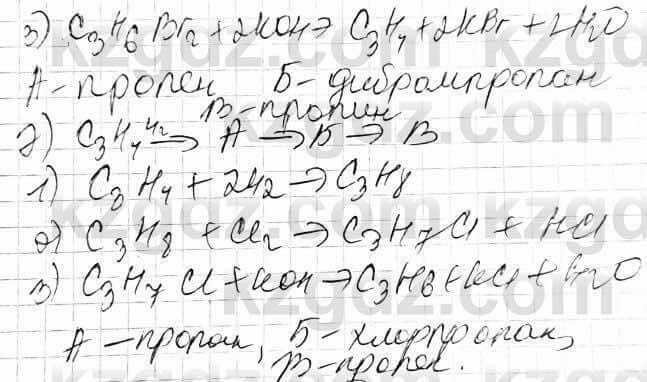 3) C₃H₆Br₂ + 2KOH → C₃H₄ + 2KBr + 2H₂O
А - пропен Б - дибромпропан
В - пропин
2) C₃H₄ H₂→ А → Б → В
1) C₃H₄ + 2H₂ → C₃H₈
2) C₃H₈ + Cl₂ → C₃H₇Cl + HCl
3) C₃H₇Cl + KOH → C₃H₆ + KCl + H₂O
А - пропан, Б - хлорпропан,
В - пропен.
kzgdz.com